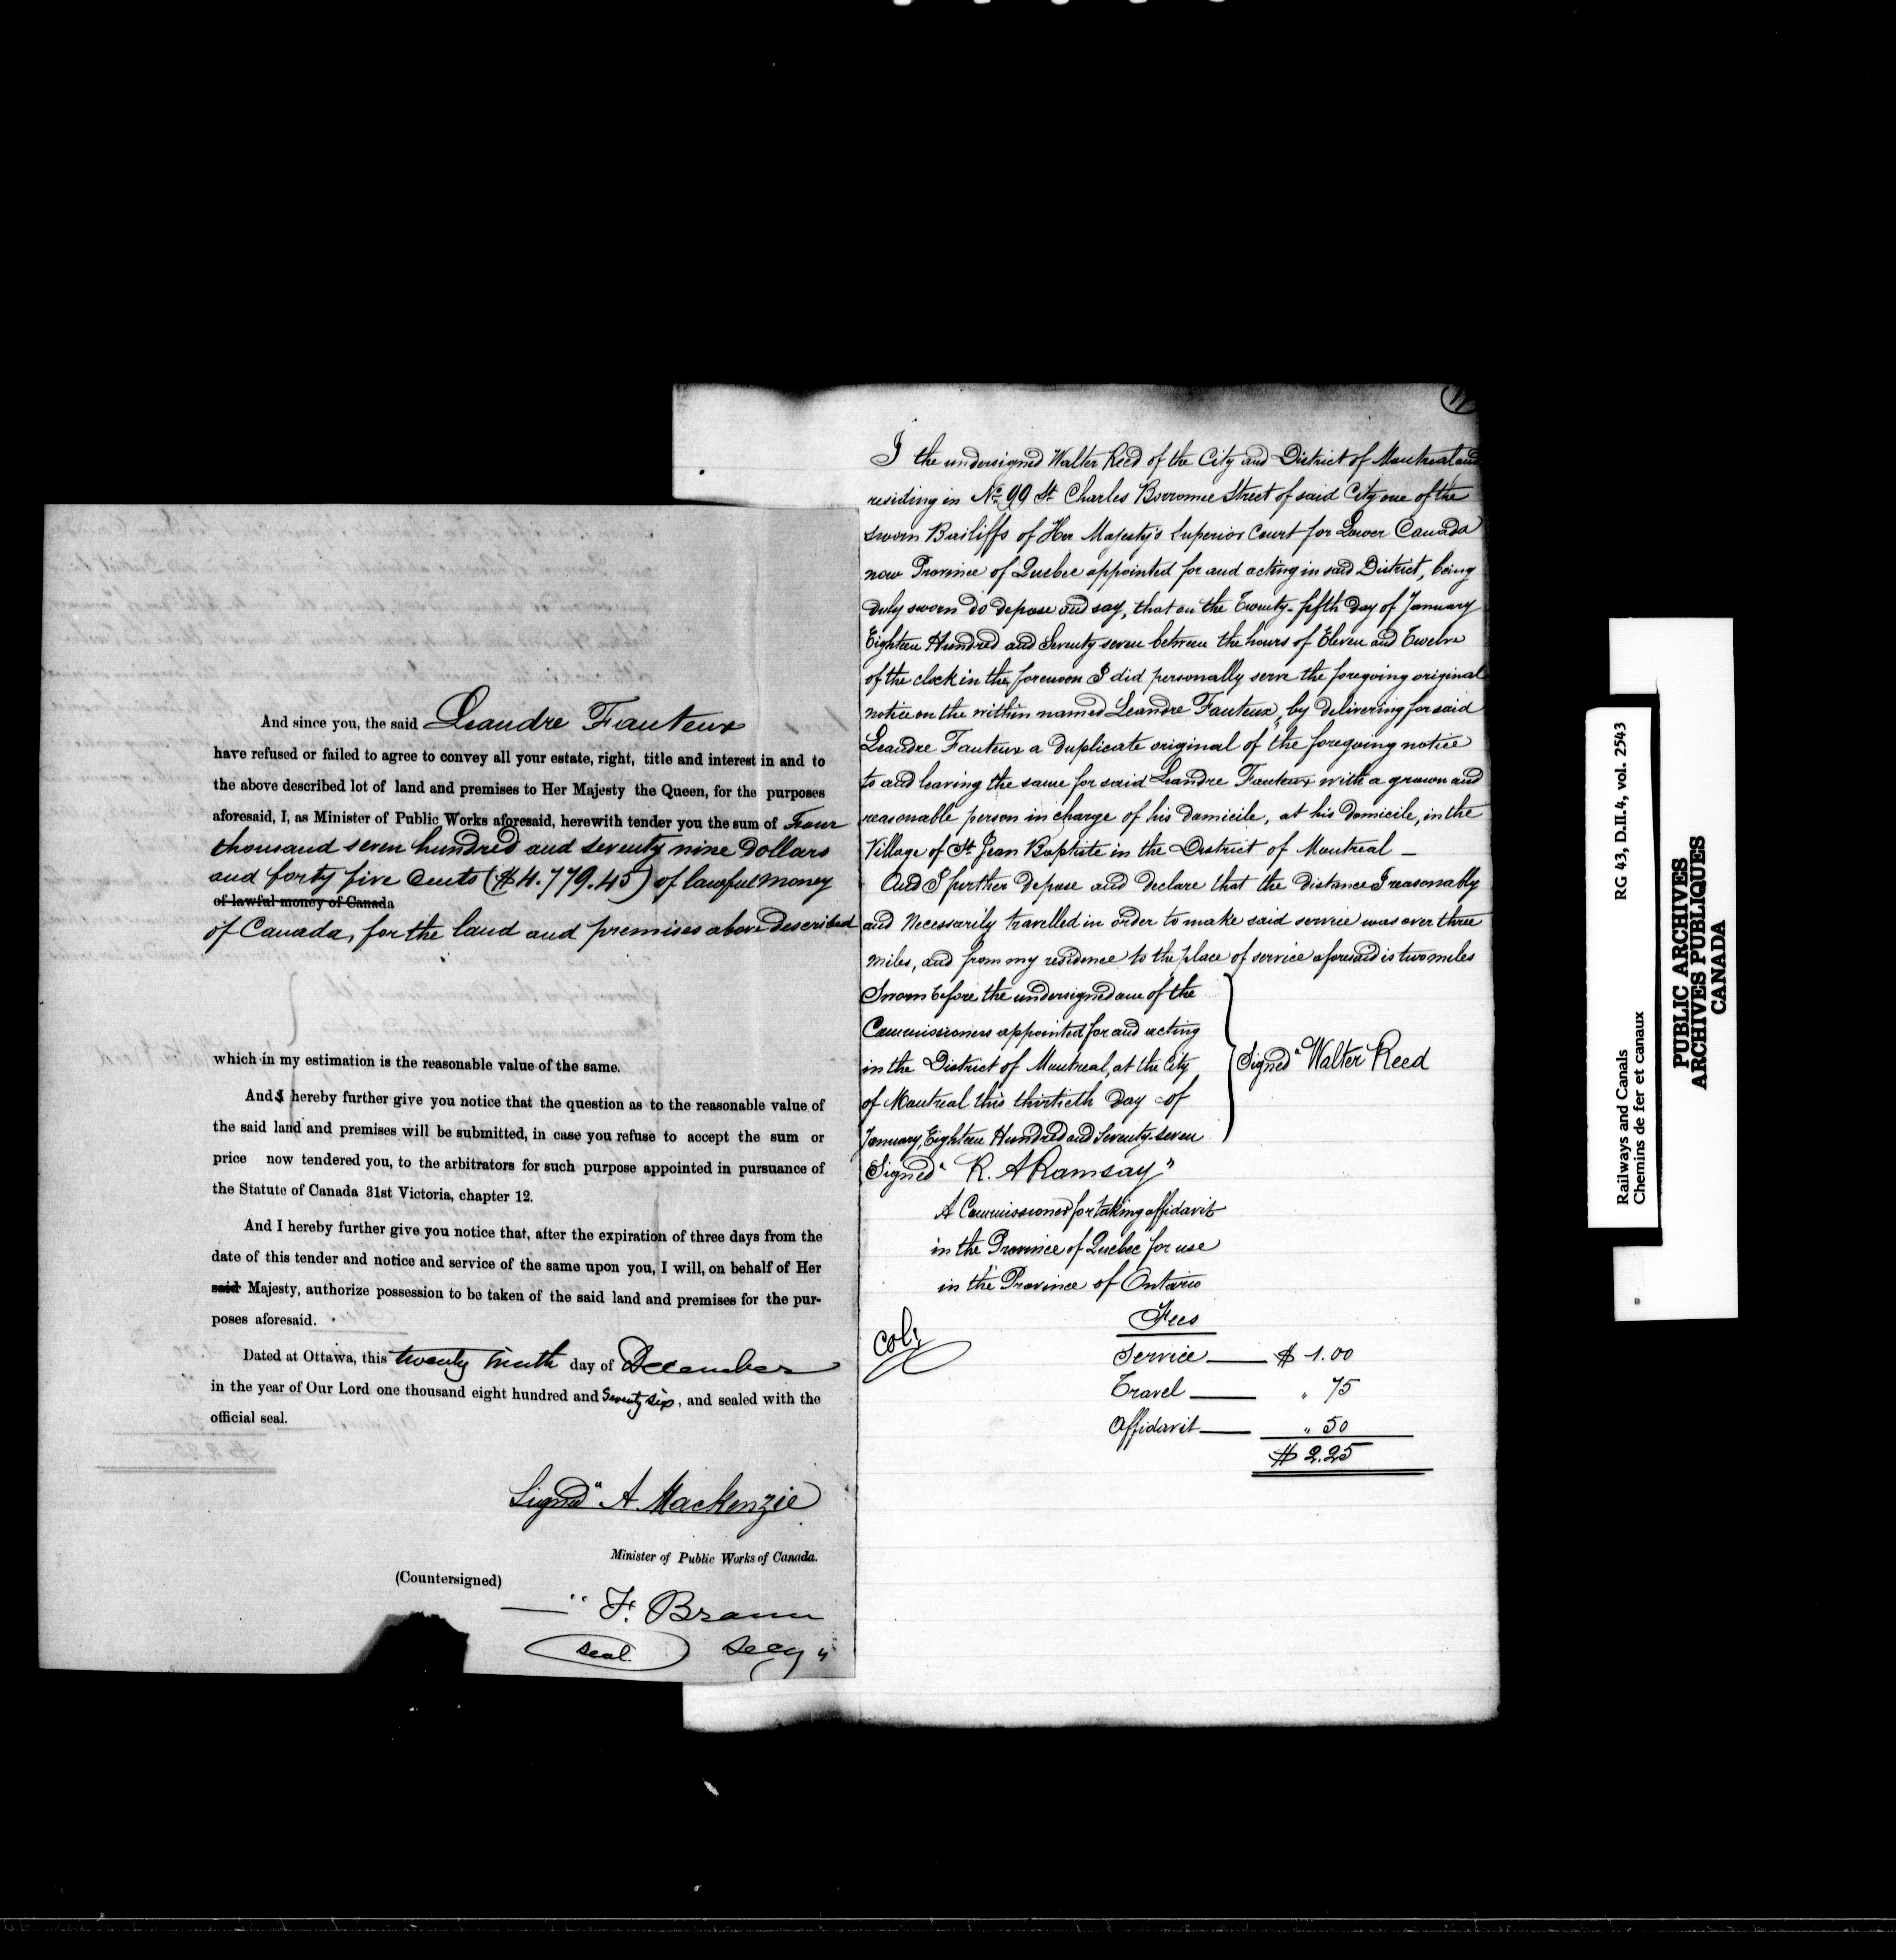 And since you, the said Leandre Fauteux
have refused or failed to agree to convey all your estate, right, title and interest in and to
the above described lot of land and premises to Her Majesty the Queen, for the purposes
aforesaid, I, as Minister of Public Works aforesaid, herewith tender you the sum of Four
thousand seven hundred and seventy nine dollars
and forty five Cents ($4.779.45) of lawful money
of lawful money of Canada
of Canada, for the land and premises above described
which in my estimation is the reasonable value of the same.
And I hereby further give you notice that the question as to the reasonable value of
the said land and premises will be submitted, in case you refuse to accept the sum or
price now tendered you, to the arbitrators for such purpose appointed in pursuance of
the Statute of Canada 31st Victoria, chapter 12.
And I hereby further give you notice that, after the expiration of three days from the
date of this tender and notice and service of the same upon you, I will, on behalf of Her
said Majesty, authorize possession to be taken of the said land and premises for the pur-
poses aforesaid.
Dated at Ottawa, this twenty ninth day of December
in the year of Our Lord one thousand eight hundred and Seventy six, and sealed with the
official seal.
Signed "A Mackenzie
Minister of Public Works of Canada.
(Countersigned)
— " F. Braun
Seal. Secy "
I the undersigned Walter Reed of the City and District of Montreal and
residing in No. 99 St Charles Borromee Street of said City one of the
sworn Bailiffs of Her Majesty's Superior Court for Lower Canada
now Province of Quebec appointed for and acting in said District, being
duly sworn do depose and say, that on the Twenty-fifth day of January
Eighteen Hundred and Seventy seven between the hours of Eleven and Twelve
of the clock in the forenoon I did personally serve the foregoing original
notice on the within named Leandre Fauteux, by delivering for said
Leandre Fauteux a duplicate original of the foregoing notice
to and leaving the same for said Leandre Fauteux with a grown and
reasonable person in charge of his domicile, at his domicile, in the
Village of St Jean Baptiste in the District of Montreal —
And I further depose and declare that the distance I reasonably
and necessarily travelled in order to make said service was over three
miles, and from my residence to the place of service aforesaid is two miles
Sworn before the undersigned one of the
Commissioners appointed for and acting
in the District of Montreal, at the City
of Montreal this thirtieth day of
January, Eighteen Hundred and Seventy-seven
Signed "Walter Reed
Signed "R. A Ramsay"
A Commissioner for taking affidavit
in the Province of Quebec for use
in the Province of Ontario
Fees
Service — $ 1.00
Travel — " 75
Affidavit — " 50
$ 2.25
RG 43, D.II.4, vol. 2543
Railways and Canals
Chemins de fer et canaux
PUBLIC ARCHIVES
ARCHIVES PUBLIQUES
CANADA